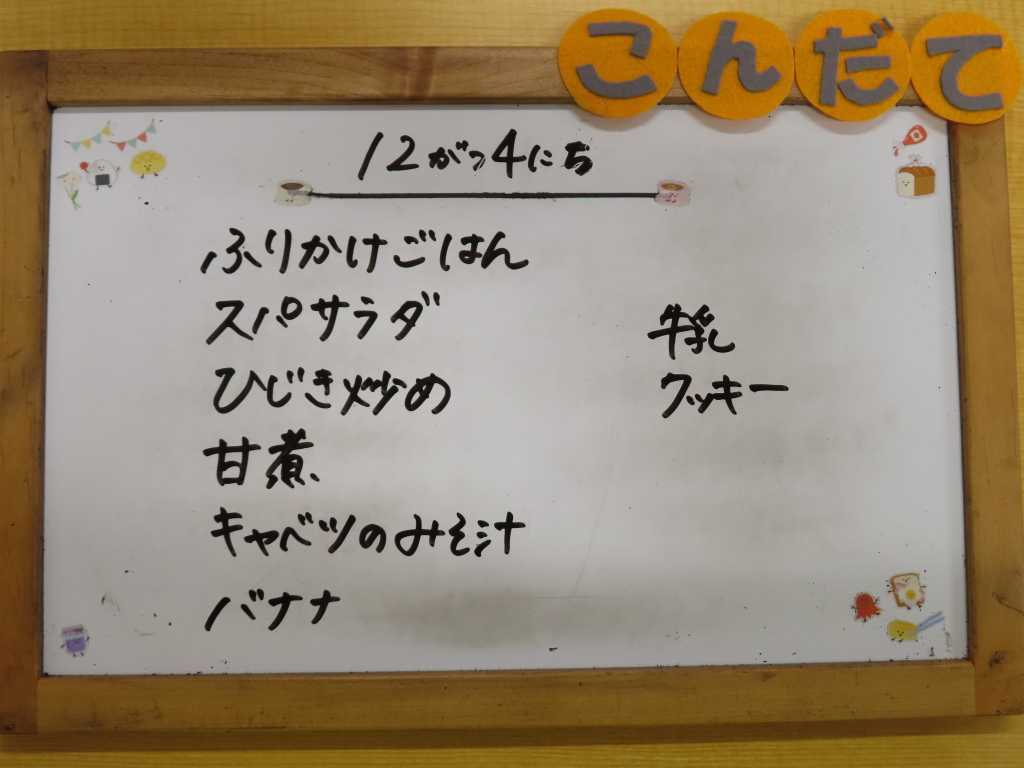 こんだて
12がつ4にち
ふりかけごはん
スパサラダ
ひじき炒め
甘煮
キャベツのみそ汁
バナナ
牛乳
クッキー